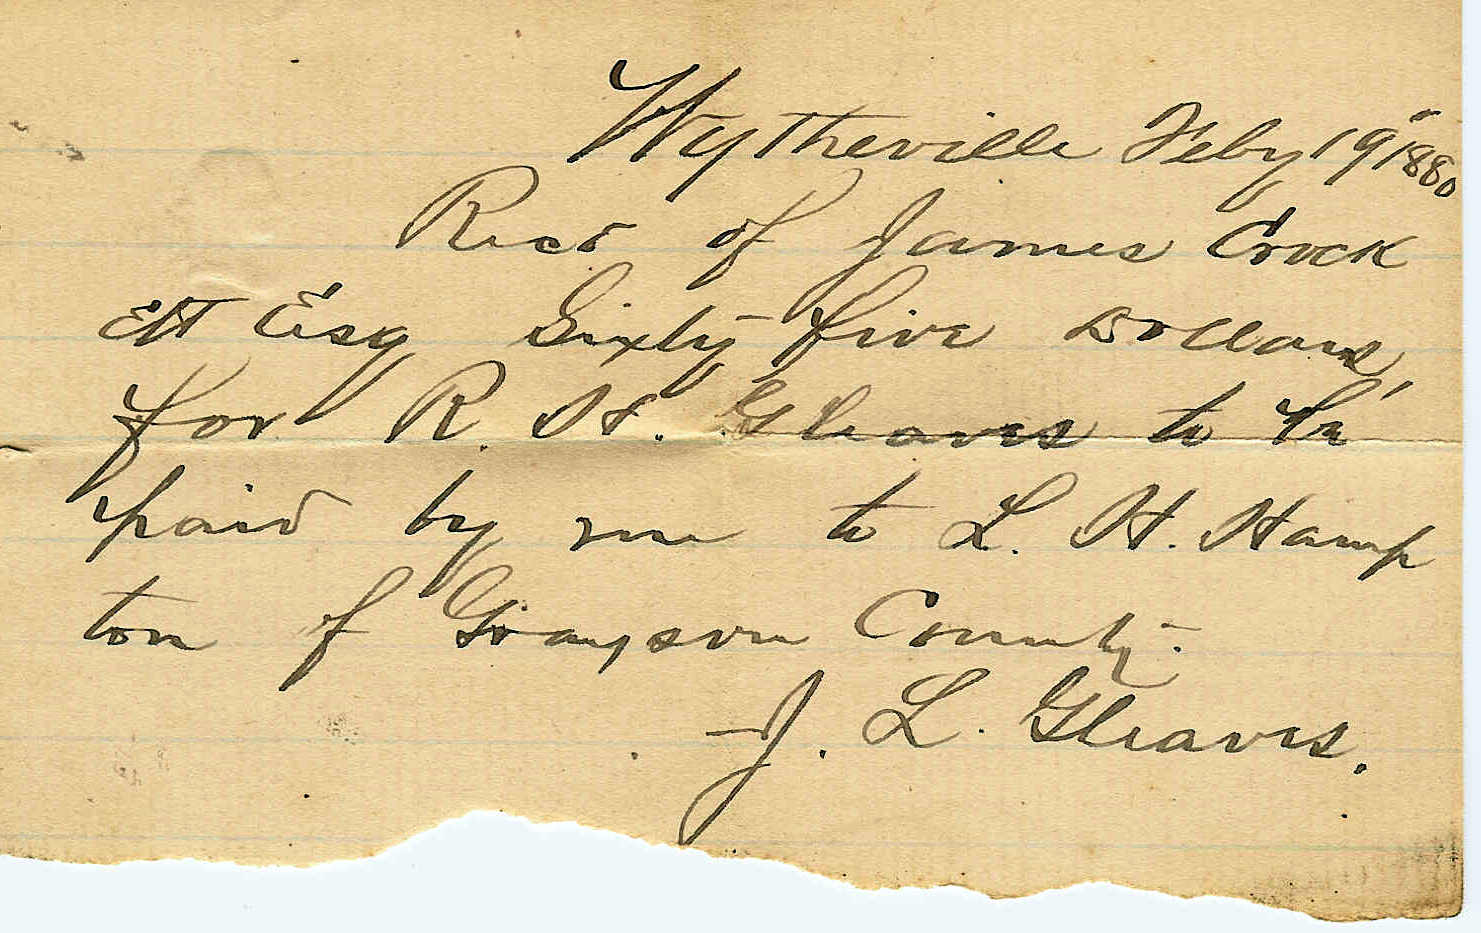 Wytheville Feby 19" 1880
Recd of James Crock
ett Esq Sixty five Dollars
for R. H. Gleaves to be
paid by me to L. H. Hamp
ton of Grayson County.
J. L. Gleaves.